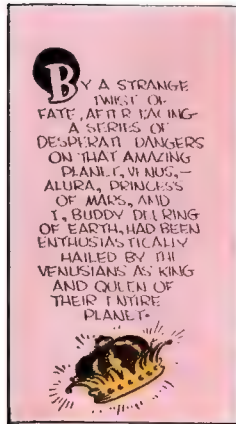 BY A STRANGE
TWIST OF
FATE, AFTER FACING
A SERIES OF
DESPERATE DANGERS
ON THAT AMAZING
PLANET, VENUS,—
ALURA, PRINCESS
OF MARS, AND
I, BUDDY DEERING
OF EARTH, HAD BEEN
ENTHUSIASTICALLY
HAILED BY THE
VENUSIANS AS KING
AND QUEEN OF
THEIR ENTIRE
PLANET.